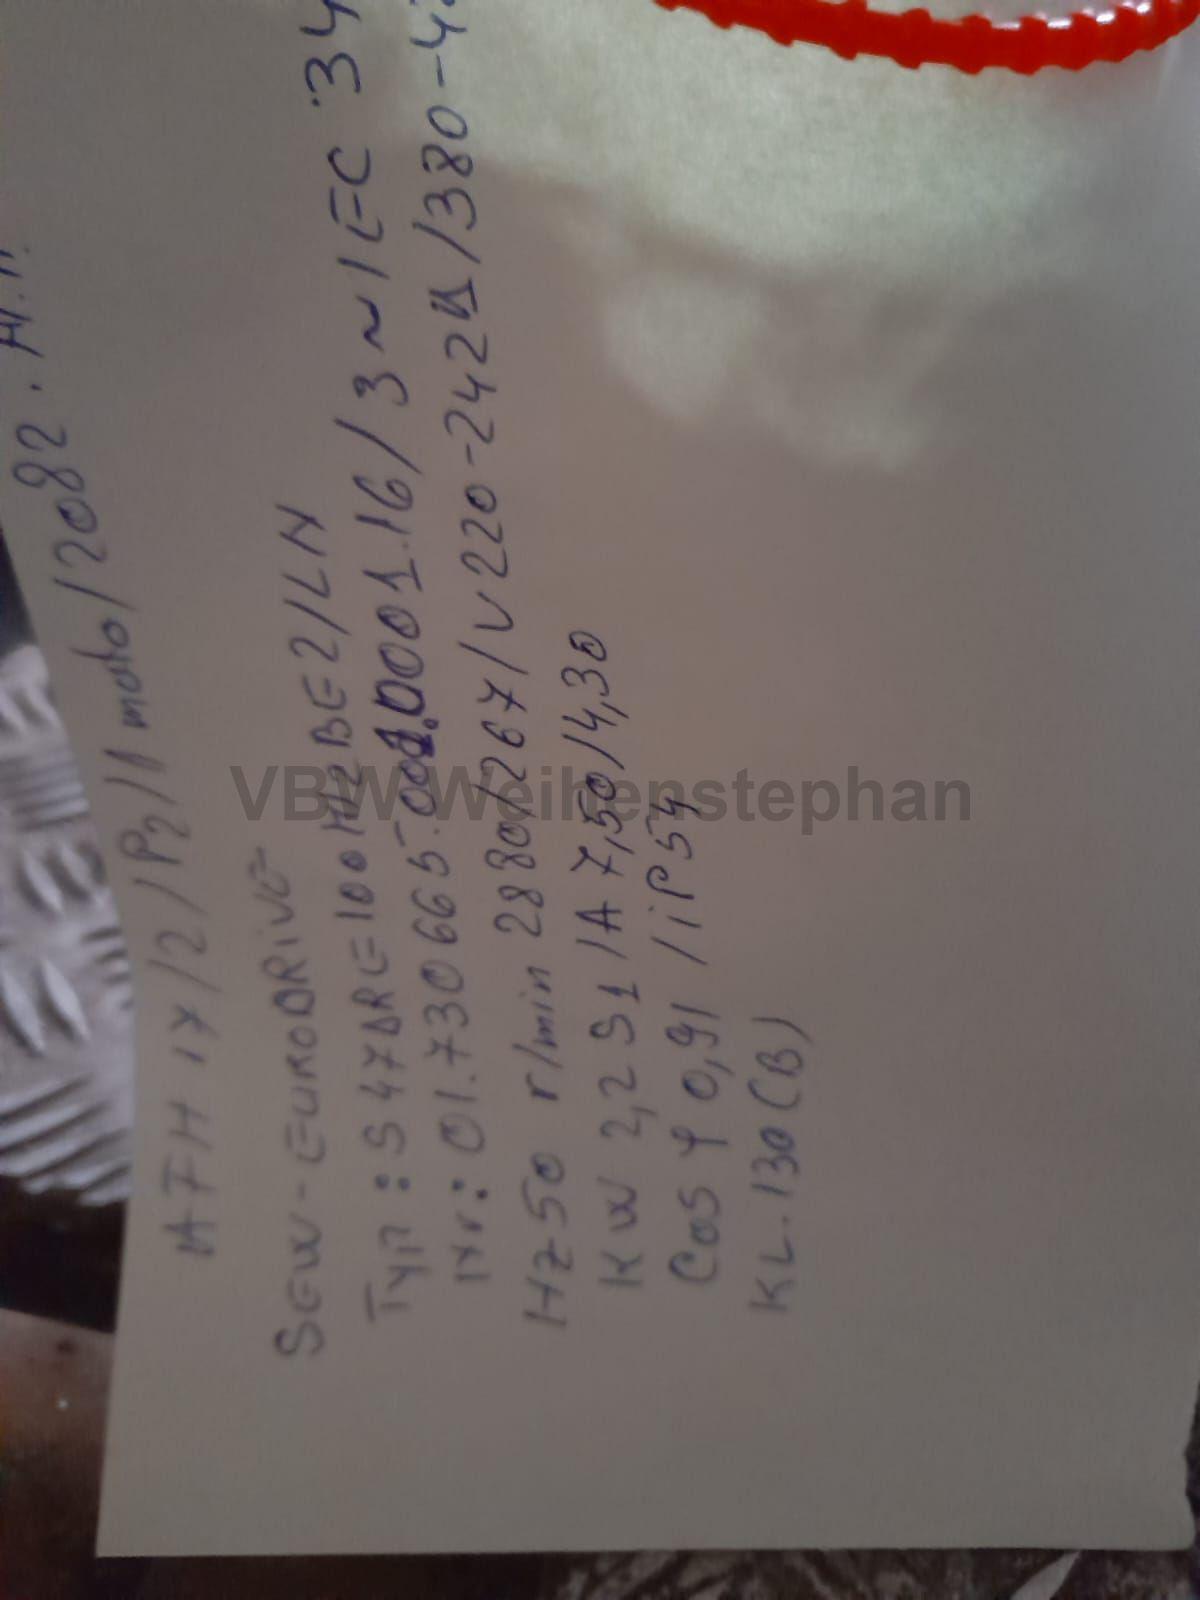 AFH 17/2/P2/1 moto/2082.
SEW-EURODRIVE
Typ: S47DRE100M2BE2/LN
Nr: 01.7306665.001.0001.16/3~IEC 34
Hz 50 r/min 2880/267/V220-242Δ/380-4
KW 2,2 S1/A 7,50/4,30
Cos φ 0,91 /iP54
KL.130(B)
VBW Weihenstephan